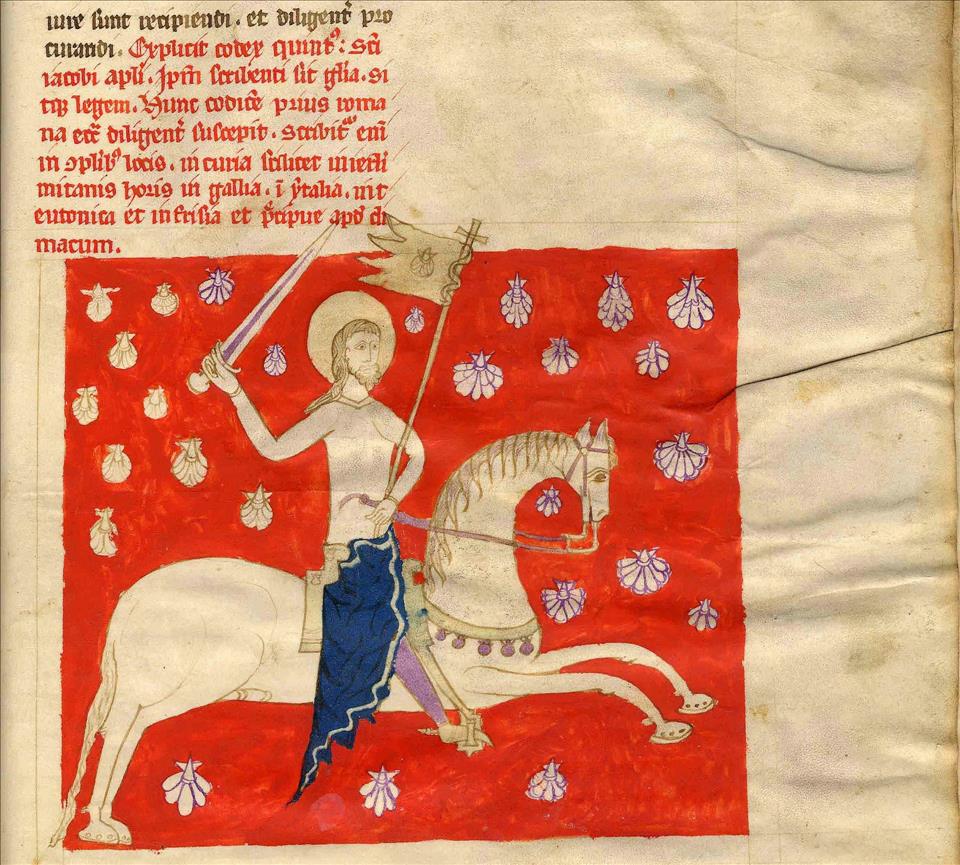 iure sunt recipiendi. et diligent̄ pro
curandi. Explicit codex quint⁹: Sc̄i
iacobi apl̄i. Ip̄m scribenti sit gl̄ia. Si
tq; legem. Hunc codicē prius roma
na ecc̄ diligent̄ suscepit. Scribit᷑ eni᷑
in ↄplib⁹ locis. in curia scilicet
mitanis horis in gallia. ī ytalia.
eutonica et in frisia et p̄cipue apd̄ di
macum.